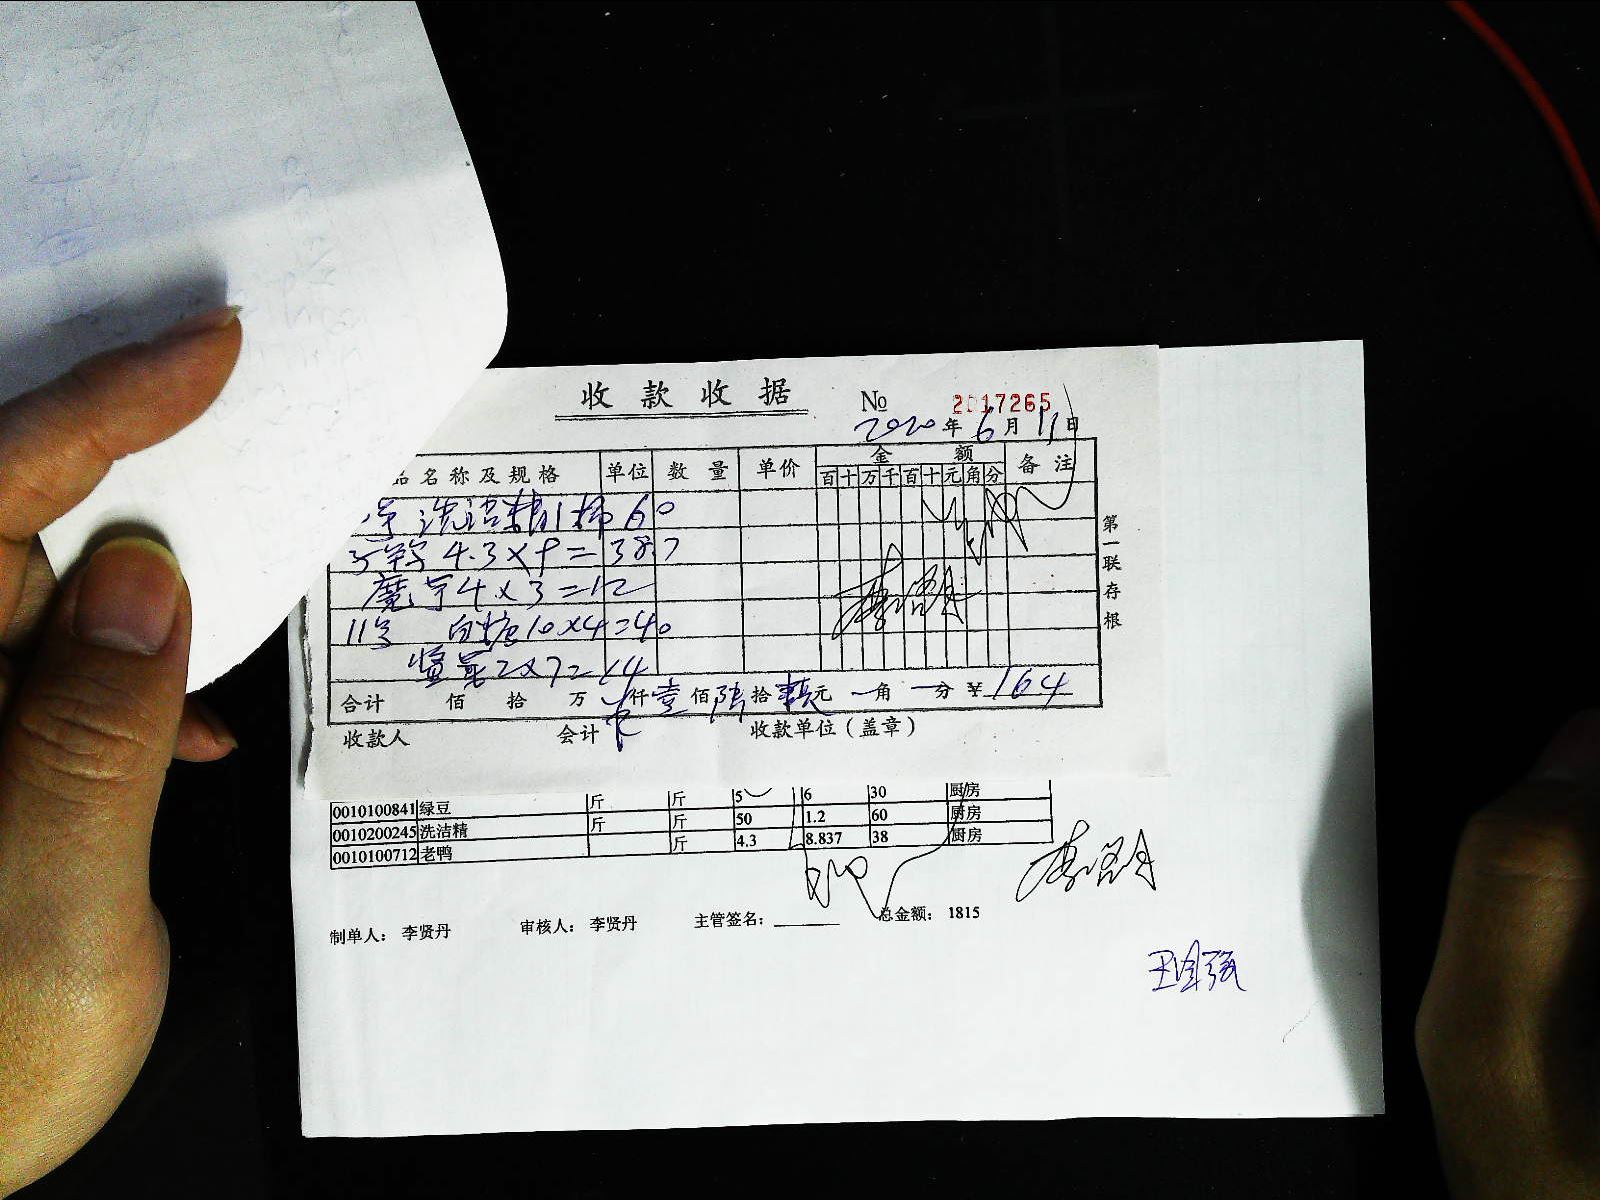 收款收据
№ 2017265
2020年6月11日
品名称及规格 单位 数量 单价 金额 备注
百 十 万 千 百 十 元 角 分
洗洁精1桶 60
4.3×9=38.7
4×3=12
11号 白糖10×4=40
2×7=14
合计 佰 拾 万 仟壹佰陆拾肆元 角 分 ¥164
收款人 会计 收款单位(盖章)
第一联存根
0010100841 绿豆 斤 斤 5 6 30 厨房
0010200245 洗洁精 斤 斤 50 1.2 60 厨房
0010100712 老鸭 斤 4.3 8.837 38 厨房
制单人: 李贤丹 审核人: 李贤丹 主管签名: 总金额: 1815